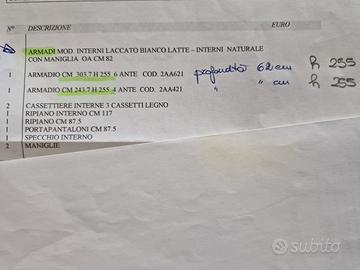 N° DESCRIZIONE EURO
ARMADI MOD. INTERNI LACCATO BIANCO LATTE – INTERNI NATURALE
CON MANIGLIA OA CM 82
1 ARMADIO CM 303.7 H 255 6 ANTE COD. 2AA621 profondità 62 cm h 255
1 ARMADIO CM 243.7 H 255 4 ANTE COD. 2AA421 " " cm h 255
2 CASSETTIERE INTERNE 3 CASSETTI LEGNO
1 RIPIANO INTERNO CM 117
1 RIPIANO CM 87.5
1 PORTAPANTALONI CM 87.5
1 SPECCHIO INTERNO
2 MANIGLIE
subito